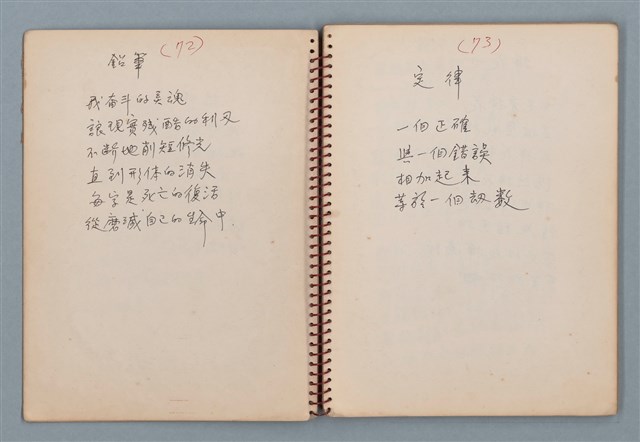 (72)
鉛筆
我奋斗的灵魂
讓現實残酷的利刃
不断地削短修尖
直到形体的消失
每字是死亡的復活
從磨滅自己的生命中
(73)
定律
一個正確
與一個錯誤
相加起来
等於一個劫数